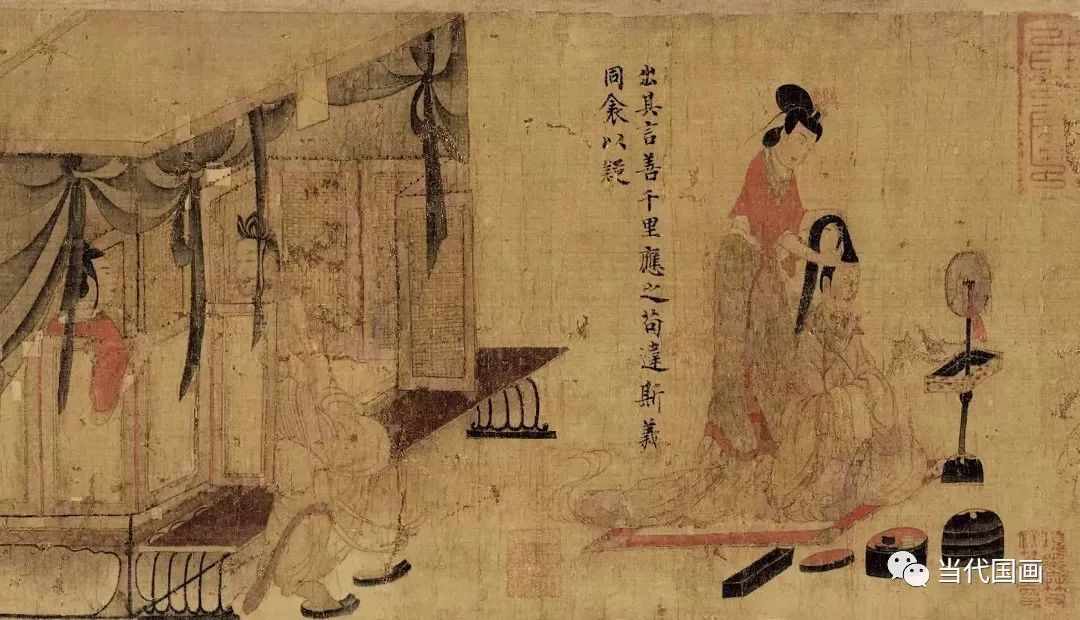 出其言善千里應之苟違斯義
同衾以疑
当代国画